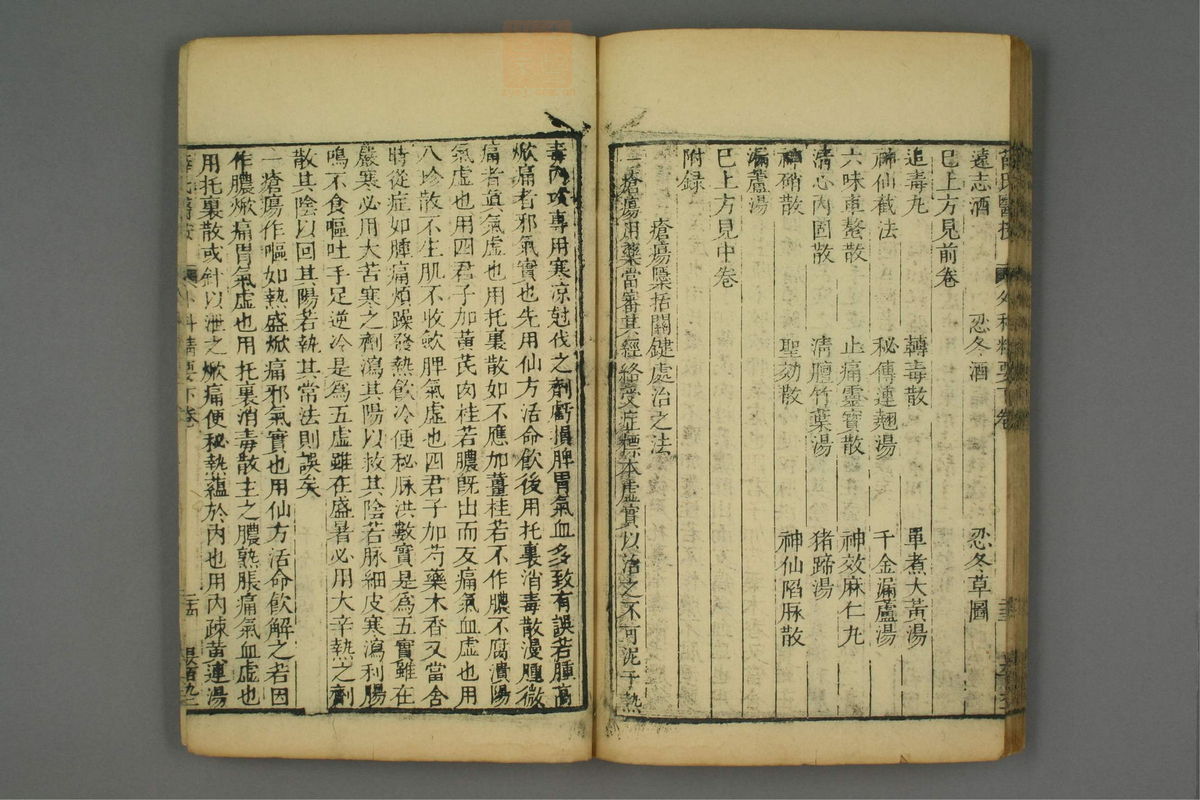 薛氏醫按 外科精要下卷
遠志酒 忍冬酒 忍冬草圖
已上方見前卷
追毒丸 轉毒散 單煮大黃湯
神仙截法 秘傳連翹湯 千金漏蘆湯
六味車螯散 止痛靈寶散 神效麻仁丸
清心內固散 清膻竹葉湯 猪蹄湯
神硝散 聖効散 神仙陷脉散
漏蘆湯
已上方見中卷
附録
瘡瘍隱括關鍵處治之法
一瘡瘍用藥當審其經絡受症標本虛實以治之不可泥于熱
毒內攻專用寒凉尅伐之劑虧損脾胃氣血多致有誤若腫高
焮痛者邪氣實也先用仙方活命飲後用托裏消毒散漫腫微
痛者眞氣虛也用托裏散如不應加薑桂若不作膿不腐潰陽
氣虛也用四君子加黃芪肉桂若膿旣出而反痛氣血虛也用
八珍散不生肌不收歛脾氣虛也四君子加芍藥木香又當舍
時從症如腫痛煩躁發熱飲冷便秘脉洪數實是爲五實雖在
嚴寒必用大苦寒之劑瀉其陽以救其陰若脉細皮寒瀉利腸
鳴不食嘔吐手足逆冷是爲五虛雖在盛暑必用大辛熱之劑
散其陰以回其陽若執其常法則誤矣
一瘡瘍作嘔如熱盛焮痛邪氣實也用仙方活命飲解之若因
作膿焮痛胃氣虛也用托裏消毒散主之膿熟脹痛氣血虛也
用托裏散或針以泄之焮痛便秘熱蘊於內也用內疎黃連湯
薛氏醫按 外科精要下卷